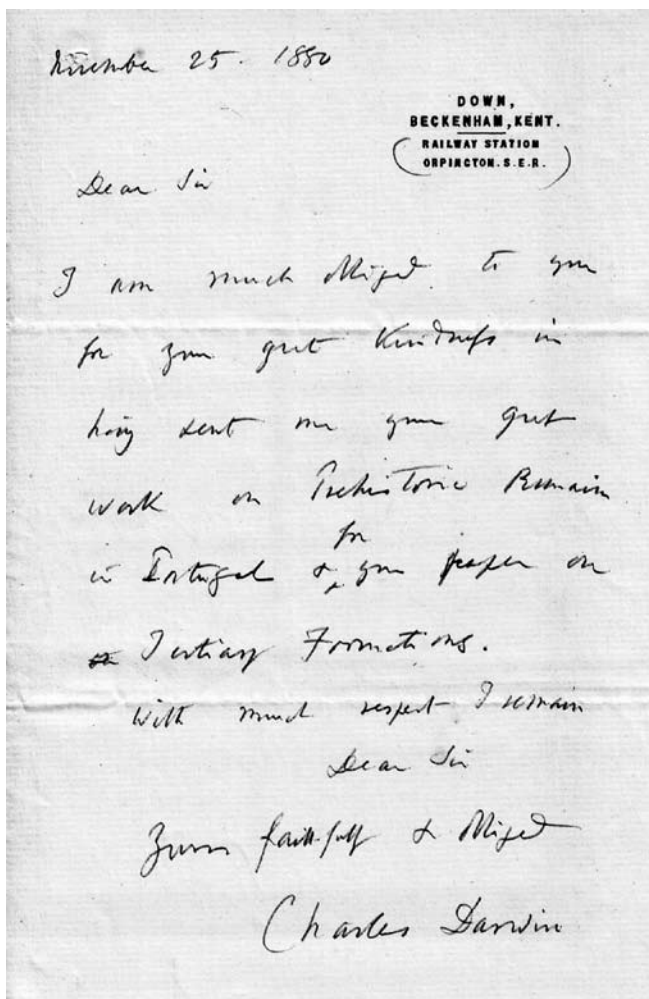 November 25. 1880
DOWN,
BECKENHAM, KENT.
RAILWAY STATION
ORPINGTON. S.E.R.
Dear Sir
I am much obliged to you
for your great kindness in
having sent me your great
work on Prehistoric Remains
in Portugal & for your paper on
Tertiary Formations.
With much respect I remain
Dear Sir
Yours faithfully & obliged
Charles Darwin